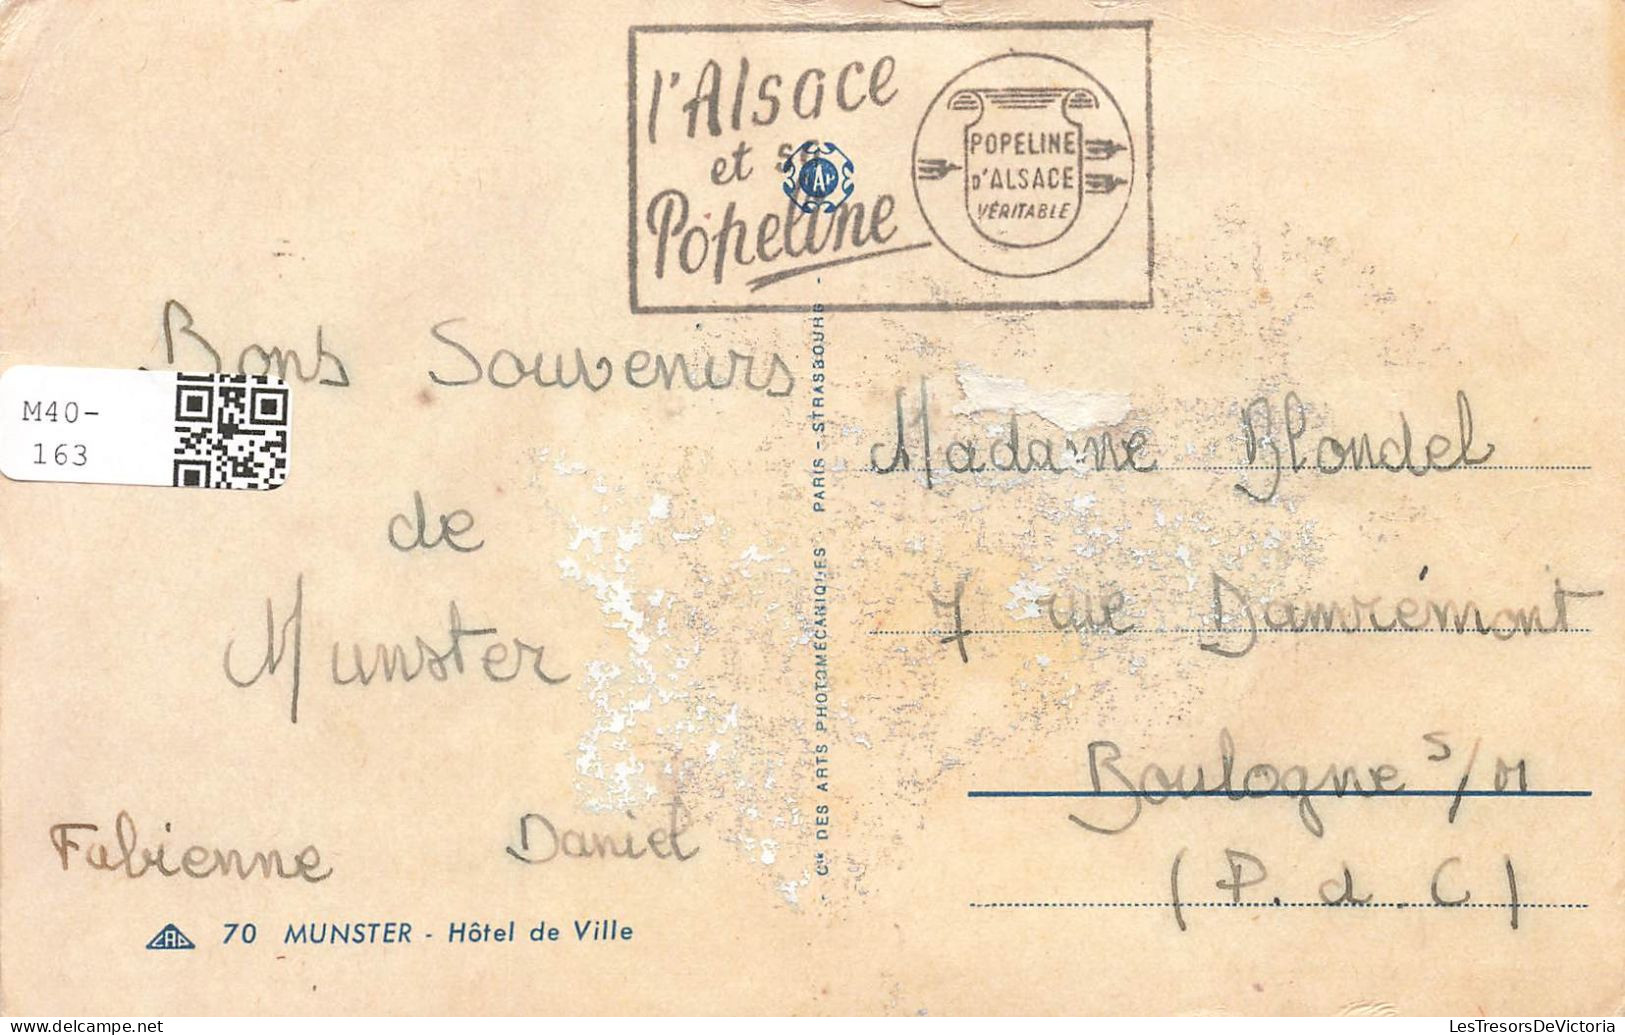 l'Alsace
et sa
Popeline
POPELINE
D'ALSACE
VÉRITABLE
CAP
Bons Souvenirs
de
Munster
Fabienne Daniel
M40-
163
Cie DES ARTS PHOTOMÉCANIQUES - PARIS - STRASBOURG -
Madame Blondel
7 rue Damrémont
Boulogne s/m
(P. d. C)
CAP 70 MUNSTER - Hôtel de Ville
LesTresorsDeVictoria.com
LesTresorsDeVictoria